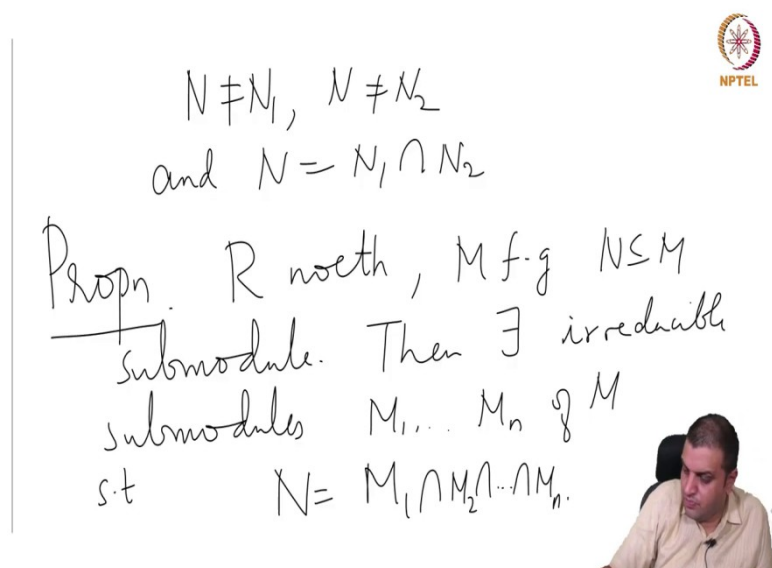 NPTEL
N ≠ N₁, N ≠ N₂
and N = N₁ ∩ N₂
Propn. R noeth, M f.g N ⊆ M
submodule. Then ∃ irreducible
submodules M₁... Mₙ of M
s.t N = M₁ ∩ M₂ ∩ ... ∩ Mₙ.